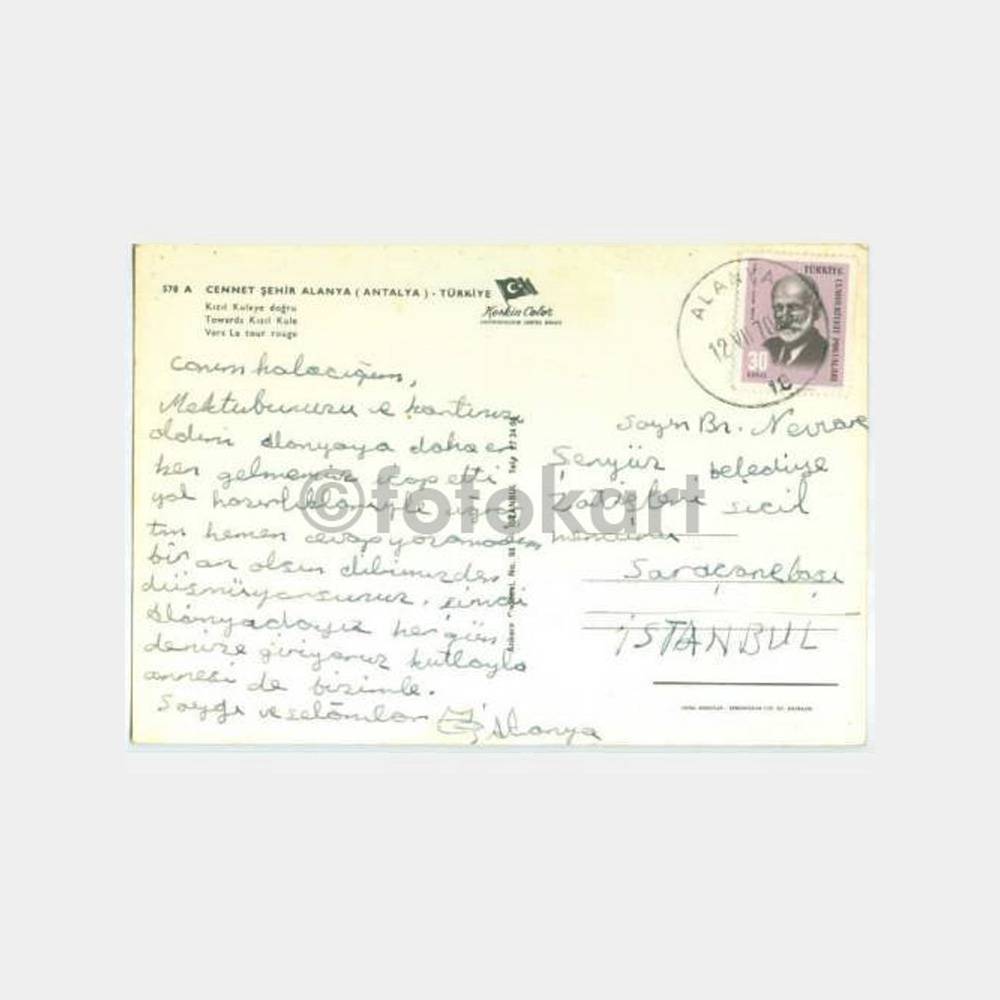 570 A CENNET ŞEHİR ALANYA (ANTALYA) - TÜRKİYE
Kızıl Kuleye doğru
Towards Kızıl Kule
Vers La tour rouge
Keskin Color
Canım halacığım,
Mektubunuzu ve kartınızı
aldım Alanyaya daha er
ken gelmemiz icap etti
yol hazırlıklarıyle
hemen cevap yazamadım
bir an olsun dilimizden
düşmüyorsunuz. Şimdi
Alanyadayız her gün
denize giriyoruz Kutlayla
annesi de bizimle.
Saygı ve selâmlar Alanya
Ankara No. 98 İSTANBUL Telf
ALANYA
12 VII 70
TÜRKİYE
30
Sayın Bn. Nevzare
Şenyüz belediye
Zatişleri sicil
memuru
Saraçanebaşı
İSTANBUL
©fotokart